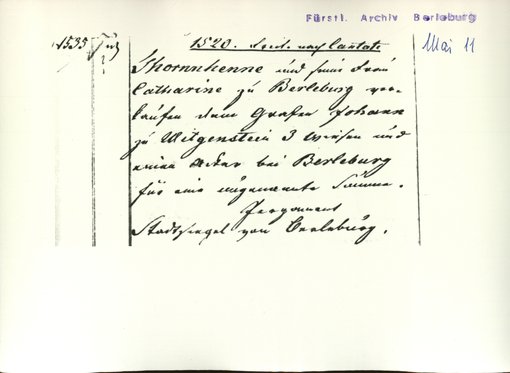 Fürstl. Archiv Berleburg
1535
1520. nach Cantate
Mai 11
Thornhenne und seine Frau
Catharine zu Berleburg ver-
kaufen dem Grafen Johann
zu Witgenstein 3 Wiesen und
einen Acker bei Berleburg
für eine ungenannte Summe.
Pergament
Stadtsiegel von Berleburg.